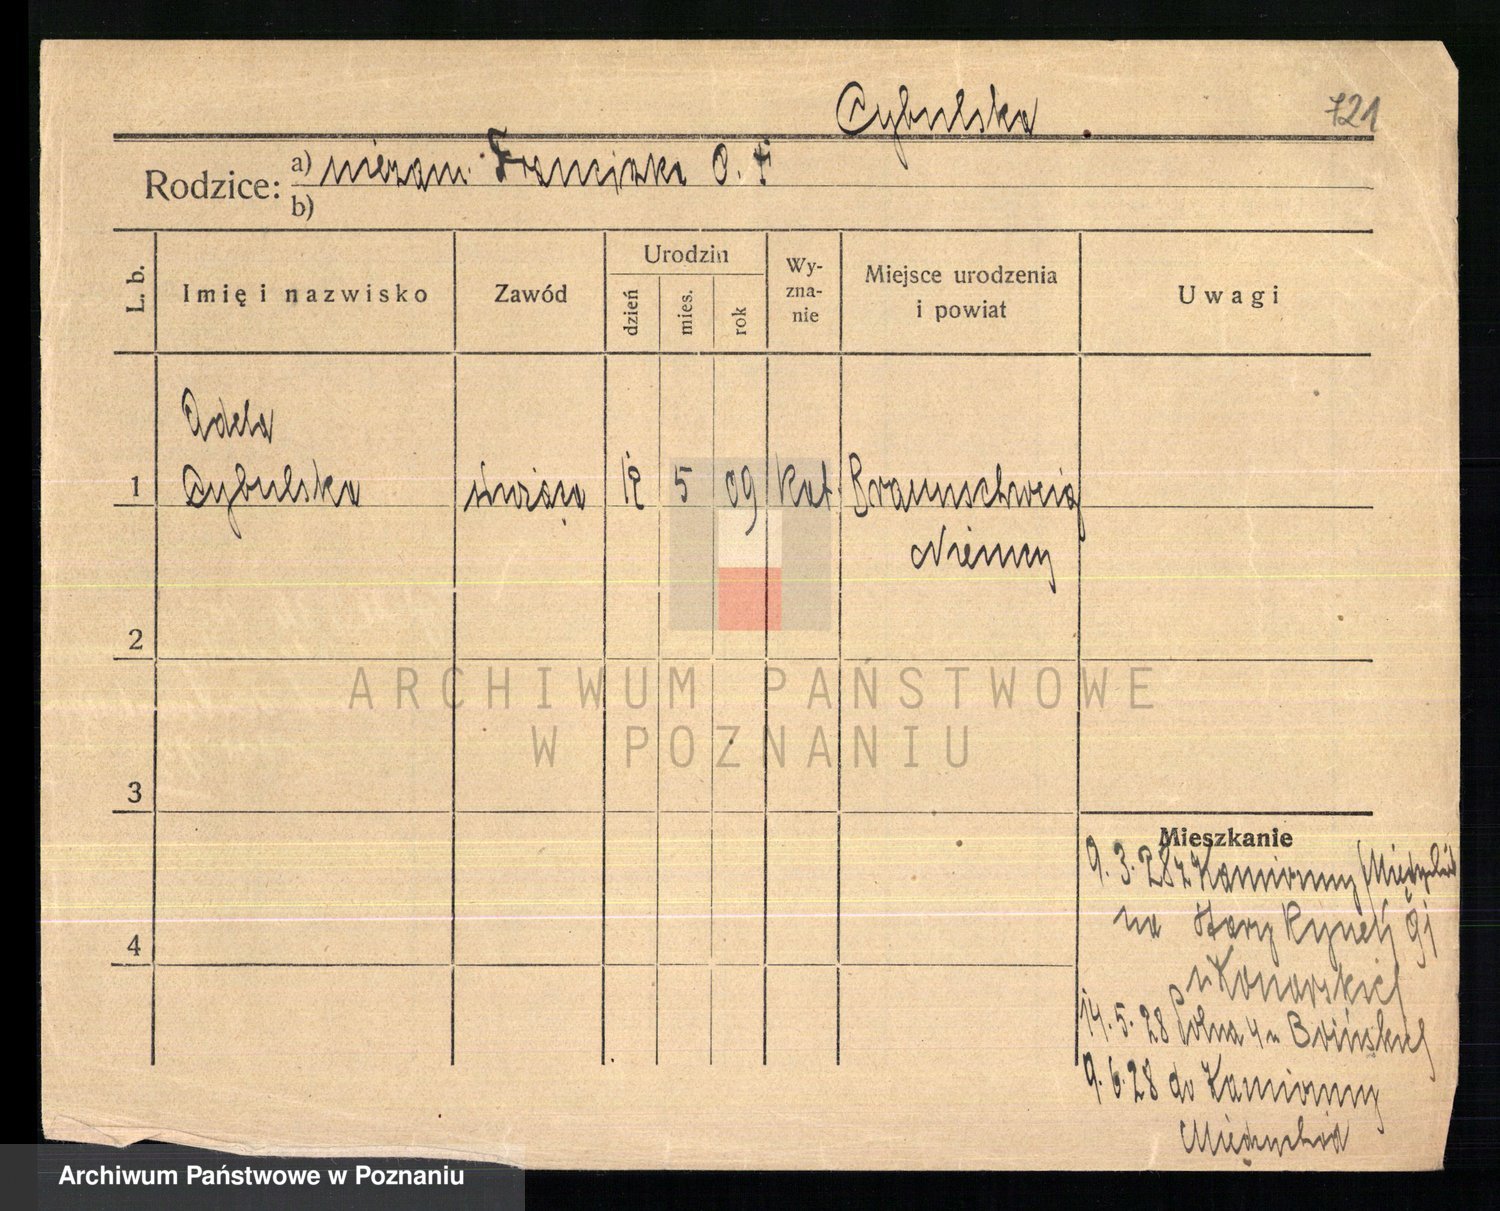 Cybulska
721
Rodzice: a) niezam. Franciszka C.
b)
L. b.
Imię i nazwisko
Zawód
Urodzin
dzień
mies.
rok
Wy-
zna-
nie
Miejsce urodzenia
i powiat
Uwagi
Adela
1 Cybulska służąca 12 5 09 kat. Braunschweig
Niemcy
2
ARCHIWUM PAŃSTWOWE
W POZNANIU
3
Mieszkanie
9.3.28 z Kamionny Międzychód
na Stary Rynek 91
u Konarskich
4
14.5.28 Polna 4 u Brińskich
9.6.28 do Kamionny
Międzychód
Archiwum Państwowe w Poznaniu